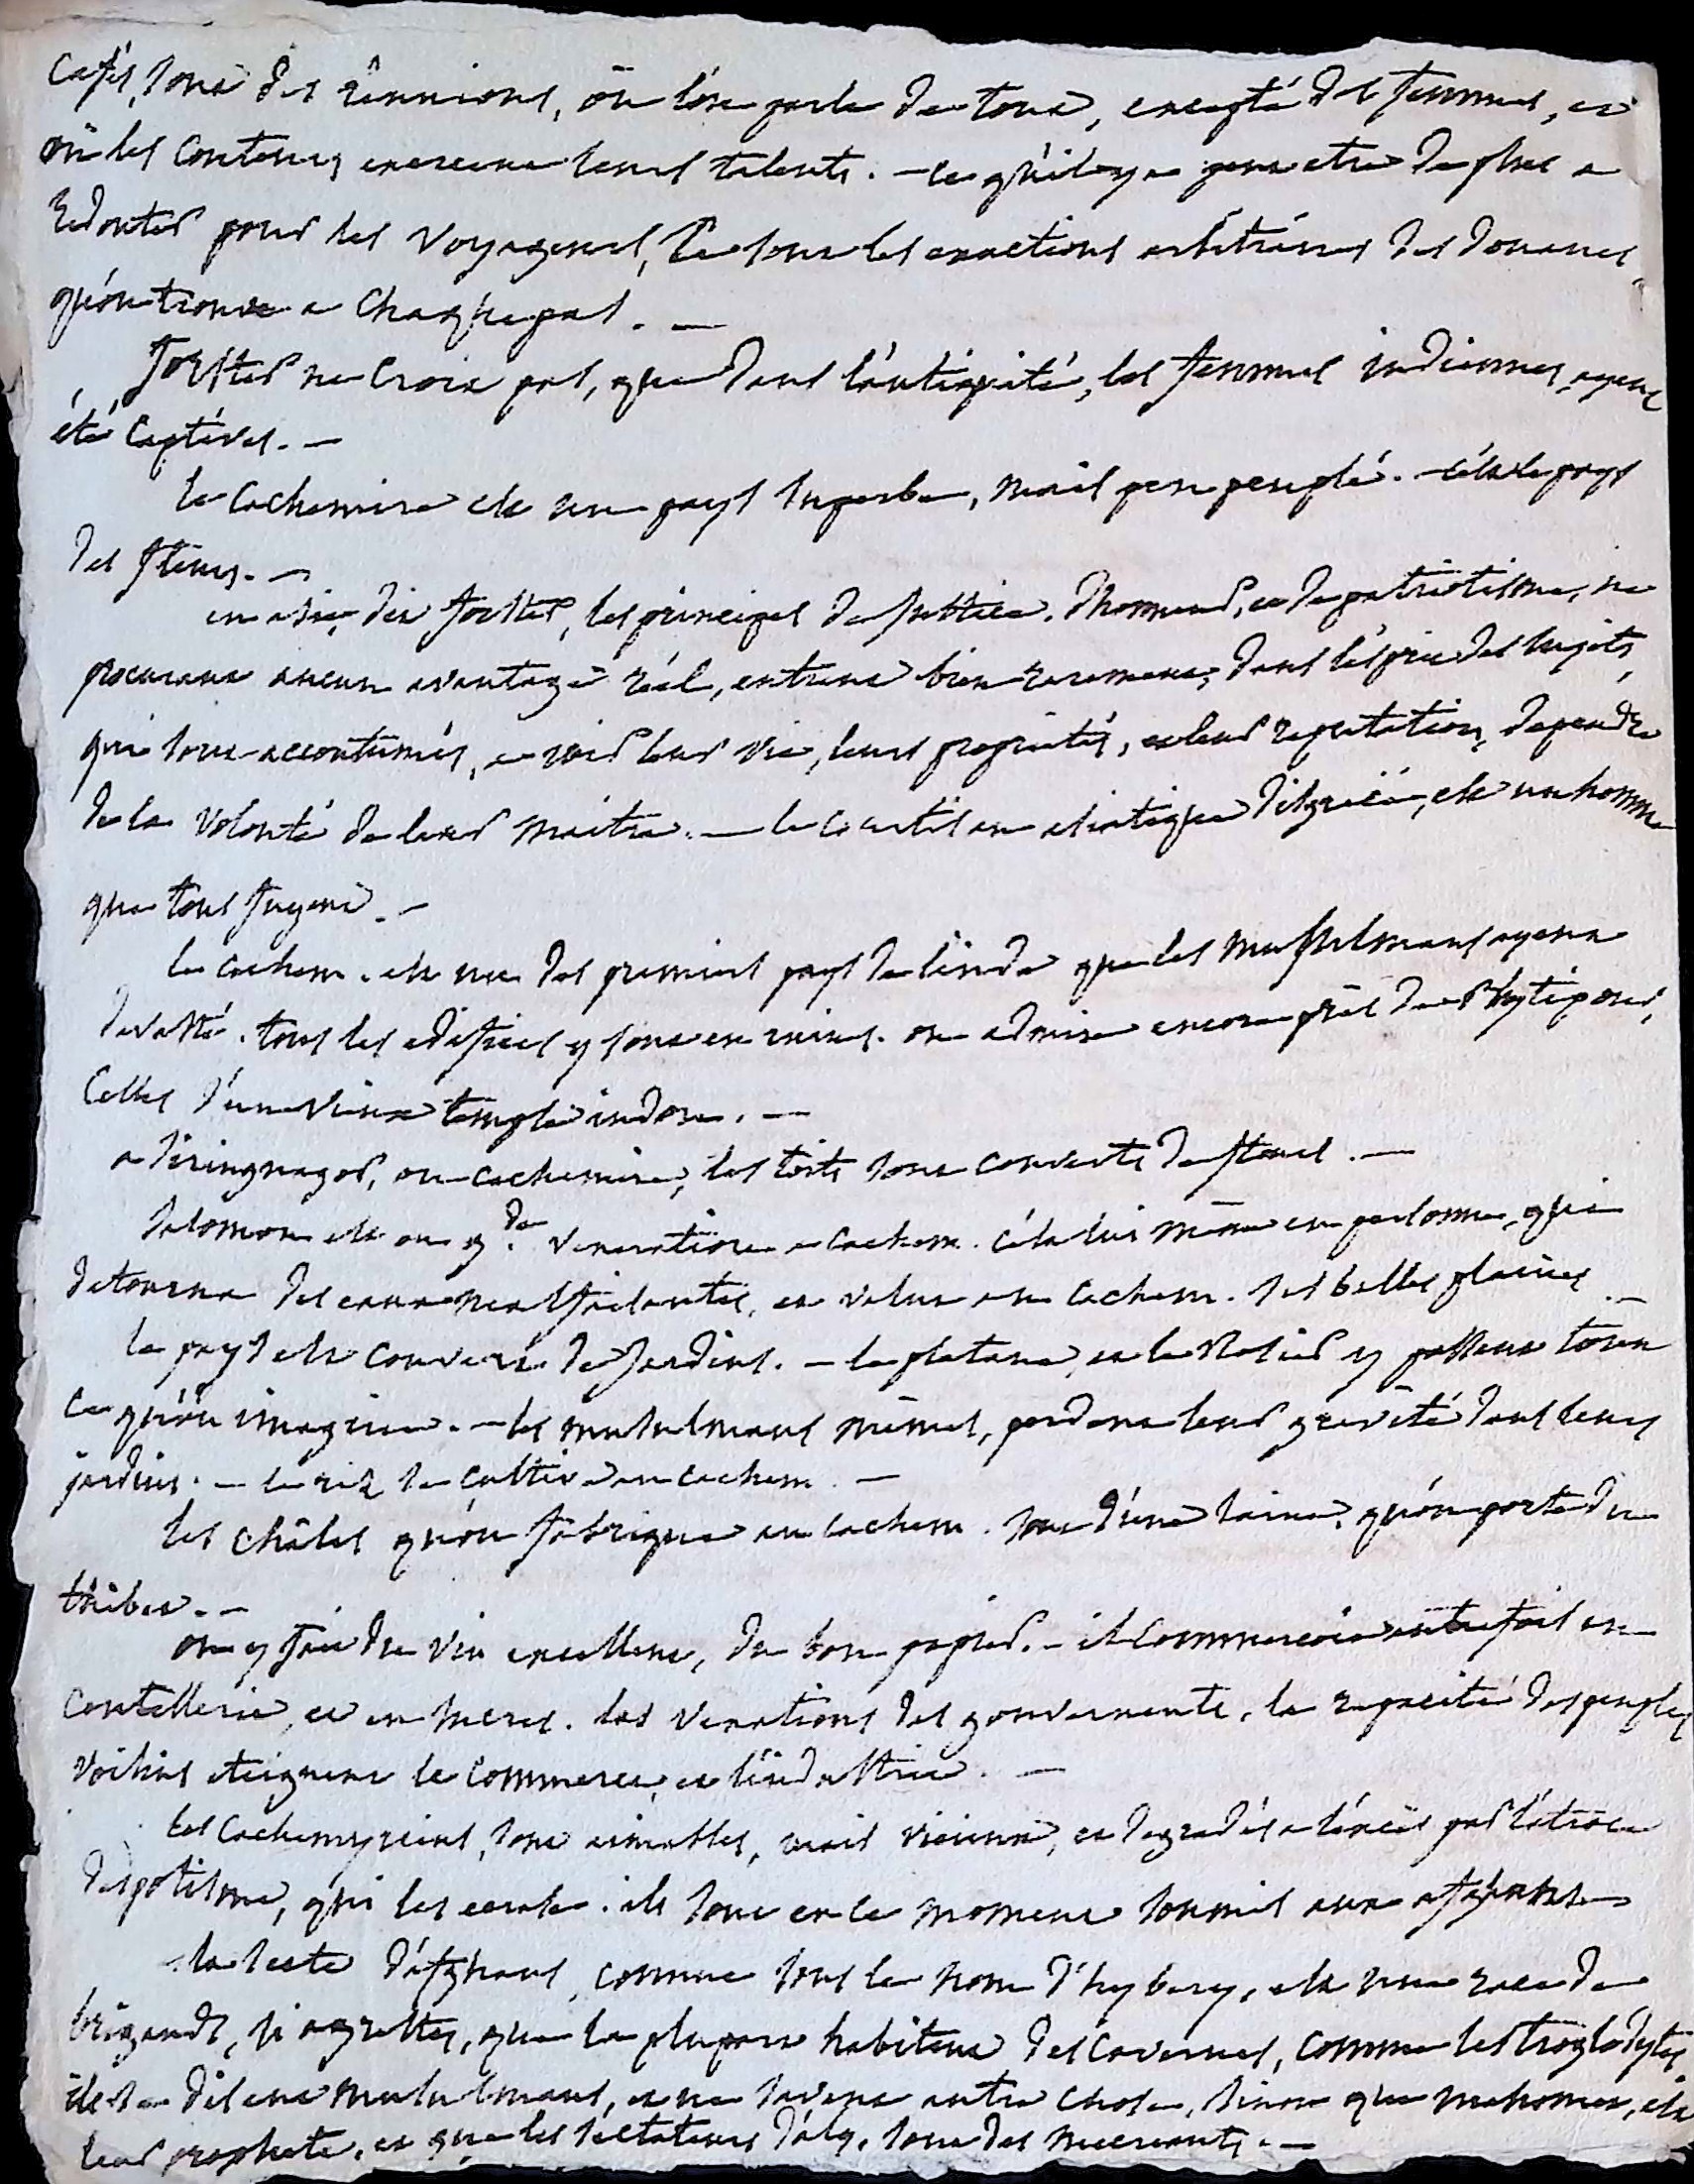 Cafés, sont des réunions, où l'on parle de tout, excepté des femmes, et
où les conteurs exercent leurs talents. — ce qu'il y a peut etre de plus a
redouter pour les voyageurs, ce sont les exactions arbitraires des douanes,
qu'on trouve a chaque pas. —
forster ne croit pas, que dans l'antiquité, les femmes indiennes, ayent
été captives. —
le Cachemire est un pays superbe, mais peu peuplé. — c'est le pays
des fleurs. —
en asie, dit forster, les principes de justice, d'honneur, et de patriotisme, ne
procurant aucun avantage réel, entrent bien rarement, dans l'esprit des sujets,
qui sont accoutumés, a voir leur vie, leurs propriétés, et leur reputation, dependre
de la volonté de leur maitre. — le courtisan asiatique disgracié, est un homme
que tous fuyent. —
le cachem. est un des premiers pays de l'inde que les musulmans ayent
devasté. tous les edifices y sont en ruines. on admire encore près de
celles d'un vieux temple indou. —
a Siringnagor, en cachemire, les toits sont couverts de fleurs. —
Salomon est en gde veneration a cachem. c'est lui même en personne, qui
detourna des eaux malfaisantes, et valut au cachem. ses belles plaines. —
le pays est couvert de jardins. — le platane, et le rosier y passent tout
ce qu'on imagine. — les musulmans mêmes, perdent leur gravité dans leurs
jardins. — le riz se cultive en cachem. —
les châles qu'on fabrique en cachem. sont d'une laine, qu'on porte du
thibet. —
on y fait du vin excellent, du bon papier. — il commerçoit autrefois en
coutellerie, et en sucre. les vexations des gouvernants, la rapacité des peuples
voisins eteignent le commerce, et l'industrie. —
les Cachemyriens, sont aimables, mais vicieux, et degradés a l'excès par l'atroce
despotisme, qui les accable. ils sont en ce moment soumis aux afghans —
la secte d'afghans, connue sous le nom d'hybery, est une race de
brigands, si agrestes, que la plupart habitent des cavernes, comme les troglodytes,
ils se disent musulmans, et ne savent autre chose, sinon que mahomet, est
leur prophete, et que les sectateurs d'aly, sont des mecreants. —